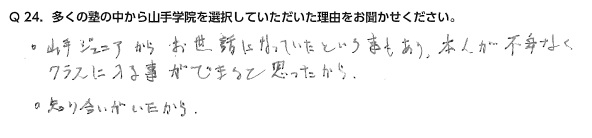 Q 24. 多くの塾の中から山手学院を選択していただいた理由をお聞かせください。
。山手ジュニアから お世話になっていたという事もあり、本人が不安なく
クラスに入る事ができると思ったから.
。知り合いがいたから.